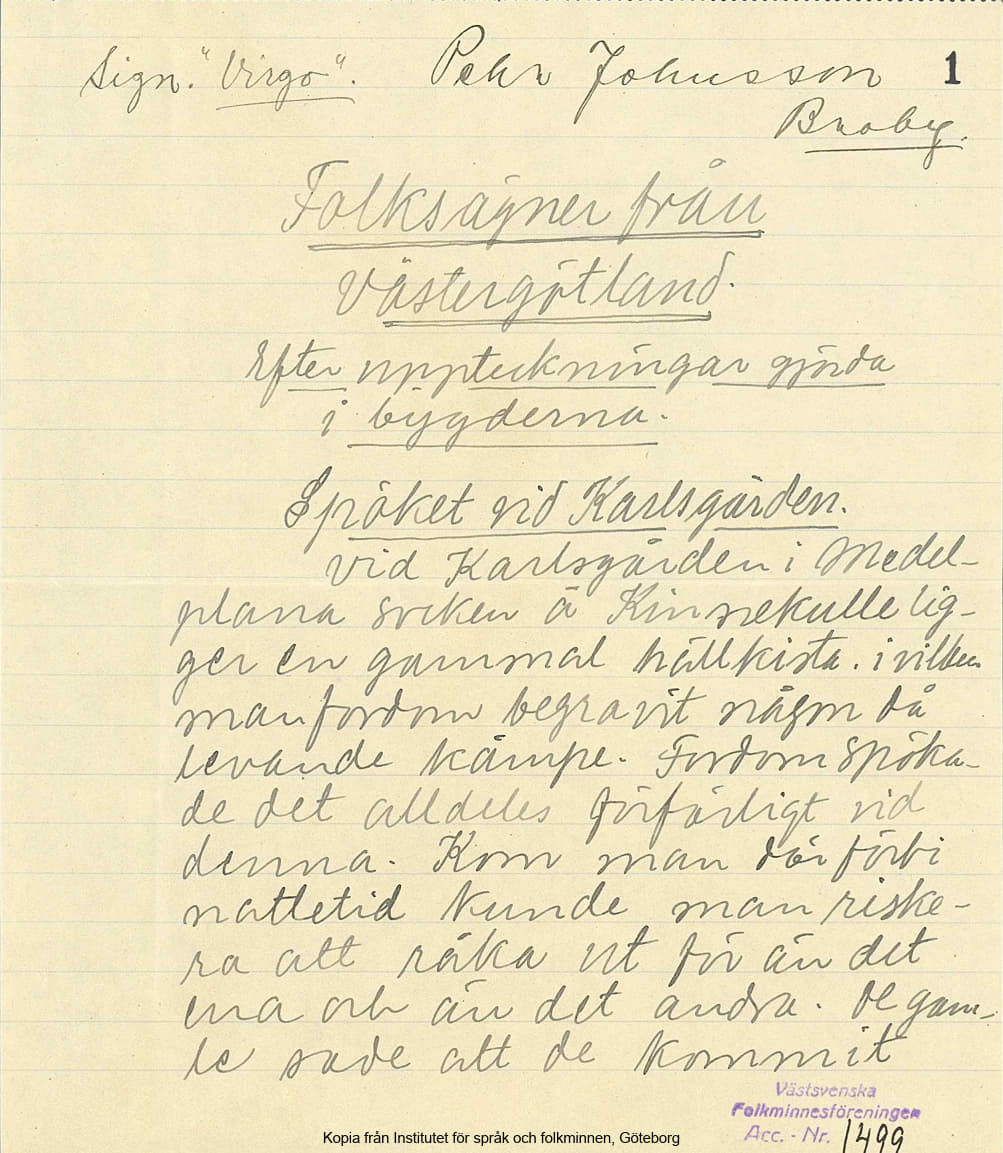 Sign. "Virgo". Pehr Johnsson 1
Broby.
Folksägner från
Västergötland.
Efter uppteckningar gjorda
i bygderna.
Spöket vid Karlsgården.
Vid Karlsgården i Medel-
plana socken å Kinnekulle lig-
ger en gammal hällkista. i vilken
man fordom begravit någon då
levande kämpe. Fordom spöka-
de det alldeles förfärligt vid
denna. Kom man där förbi
nattetid kunde man riske-
ra att råka ut för än det
ena och än det andra. De gam-
le sade att de kommit
Västsvenska
Folkminnesföreningen
Acc. - Nr. 1499
Kopia från Institutet för språk och folkminnen, Göteborg